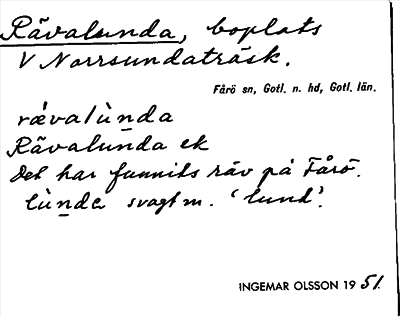 Rävalunda, boplats
V Norrsundaträsk.
Fårö sn, Gotl. n. hd, Gotl. län.
rǽvalùnda
Rävalunda ek
Det har funnits räv på Fårö.
lùnda svagt m. 'lund'.
INGEMAR OLSSON 1951.